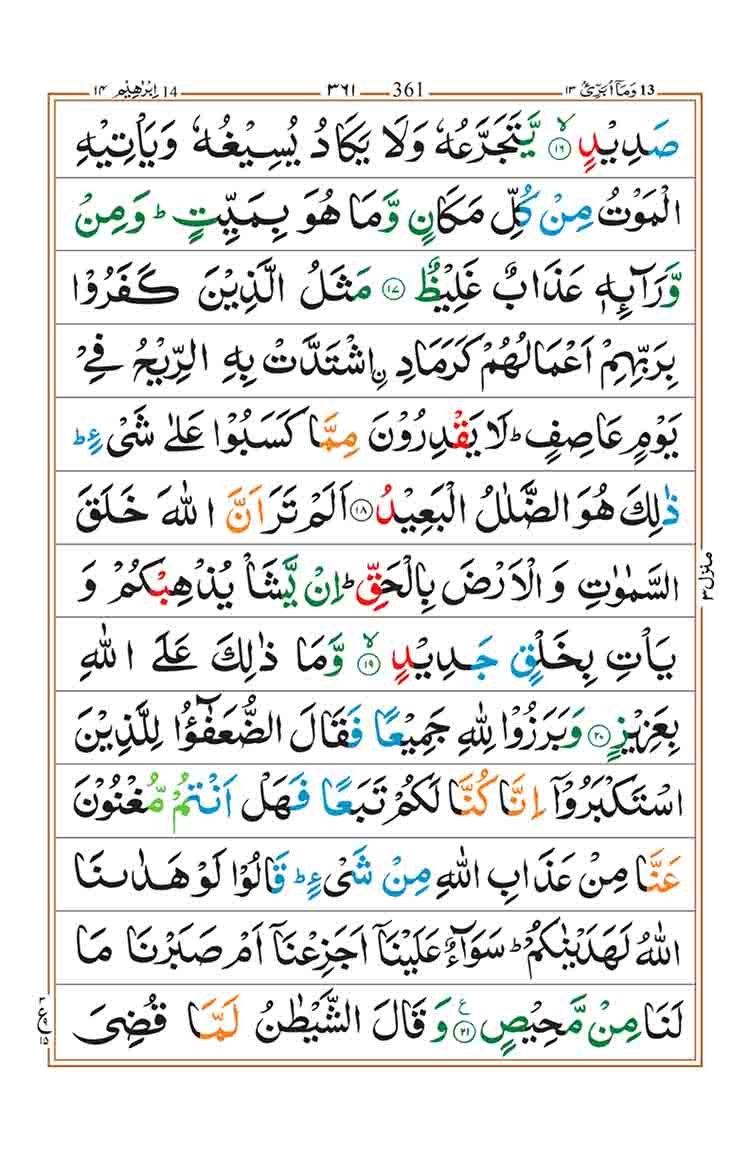 ابرٰهیم ۱۴ 14 ۳۶۱ 361 وماابرئ ۱۳ 13
صَدِیْدٍ ۙ‏﴿۱۶﴾ یَّتَجَرَّعُهٗ وَلَا یَكَادُ یُسِیْغُهٗ وَیَاْتِیْهِ
الْمَوْتُ مِنْ كُلِّ مَكَانٍ وَّمَا هُوَ بِمَیِّتٍ ؕ وَمِنْ
وَّرَآئِهٖ عَذَابٌ غَلِیْظٌ ﴿۱۷﴾ مَثَلُ الَّذِیْنَ كَفَرُوْا
بِرَبِّهِمْ اَعْمَالُهُمْ كَرَمَادِ ِ۟اشْتَدَّتْ بِهِ الرِّیْحُ فِیْ
یَوْمٍ عَاصِفٍ ؕ لَا یَقْدِرُوْنَ مِمَّا كَسَبُوْا عَلٰی شَیْءٍ ؕ
ذٰلِكَ هُوَ الضَّلٰلُ الْبَعِیْدُ ﴿۱۸﴾ اَلَمْ تَرَ اَنَّ اللهَ خَلَقَ
السَّمٰوٰتِ وَالْاَرْضَ بِالْحَقِّ ؕ اِنْ یَّشَاْ یُذْهِبْكُمْ وَ
یَاْتِ بِخَلْقٍ جَدِیْدٍ ۙ‏﴿۱۹﴾ وَّمَا ذٰلِكَ عَلَی اللهِ
بِعَزِیْزٍ ﴿۲۰﴾ وَبَرَزُوْا لِلهِ جَمِیْعًا فَقَالَ الضُّعَفٰٓؤُا لِلَّذِیْنَ
اسْتَكْبَرُوْۤا اِنَّا كُنَّا لَكُمْ تَبَعًا فَهَلْ اَنْتُمْ مُّغْنُوْنَ
عَنَّا مِنْ عَذَابِ اللهِ مِنْ شَیْءٍ ؕ قَالُوْا لَوْ هَدٰىنَا
اللهُ لَهَدَیْنٰكُمْ ؕ سَوَآءٌ عَلَیْنَاۤ اَجَزِعْنَاۤ اَمْ صَبَرْنَا مَا
لَنَا مِنْ مَّحِیْصٍ ﴿۲۱﴾ وَقَالَ الشَّیْطٰنُ لَمَّا قُضِیَ
منزل ۳